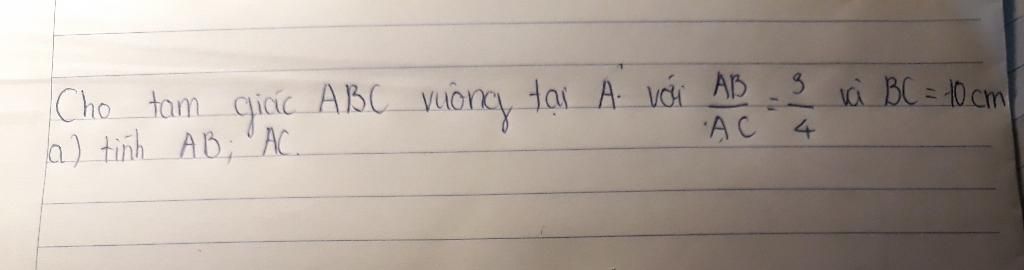 Cho tam giác ABC vuông tại A. với AB/AC = 3/4 và BC = 10 cm
a) tính AB; AC.